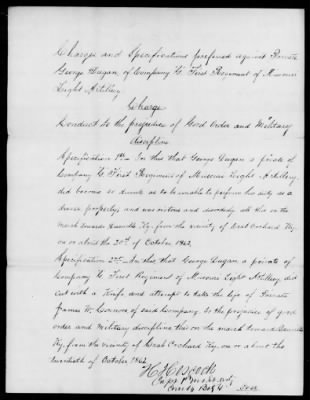 Charges and Specifications preferred against Private
George Dugan, of Company G. First Regiment of Missouri
Light Artillery
Charge
Conduct to the prejudice of Good Order and Military
discipline
Specification 1st In this that George Dugan a private of
Company G First Regiment of Missouri Light Artillery,
did become so drunk as to be unable to perform his duty as a
driver properly, and was vicious and disorderly all this on the
march towards Danville Ky. from the vicinity of Crab Orchard Ky.
on or about the 20th of October 1862.
Specification 2nd In this that George Dugan a private of
Company G First Regiment of Missouri Light Artillery, did
cut with a Knife, and attempt to take the life of Private
James W. of said Company. to the prejudice of good
order and Military discipline this on the march toward Danville
Ky. from the vicinity of Crab Orchard Ky. on or about the
twentieth of October 1862
H Hescock
Capt 1st Mo Art
Comdg Batty G